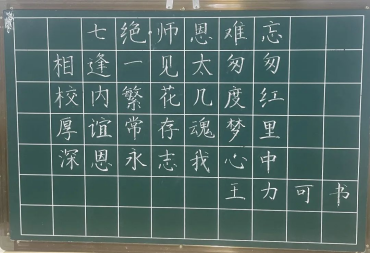 七绝·师恩难忘
相逢一见太匆匆
校内繁花几度红
厚谊常存魂梦里
深恩永志我心中
王力可书